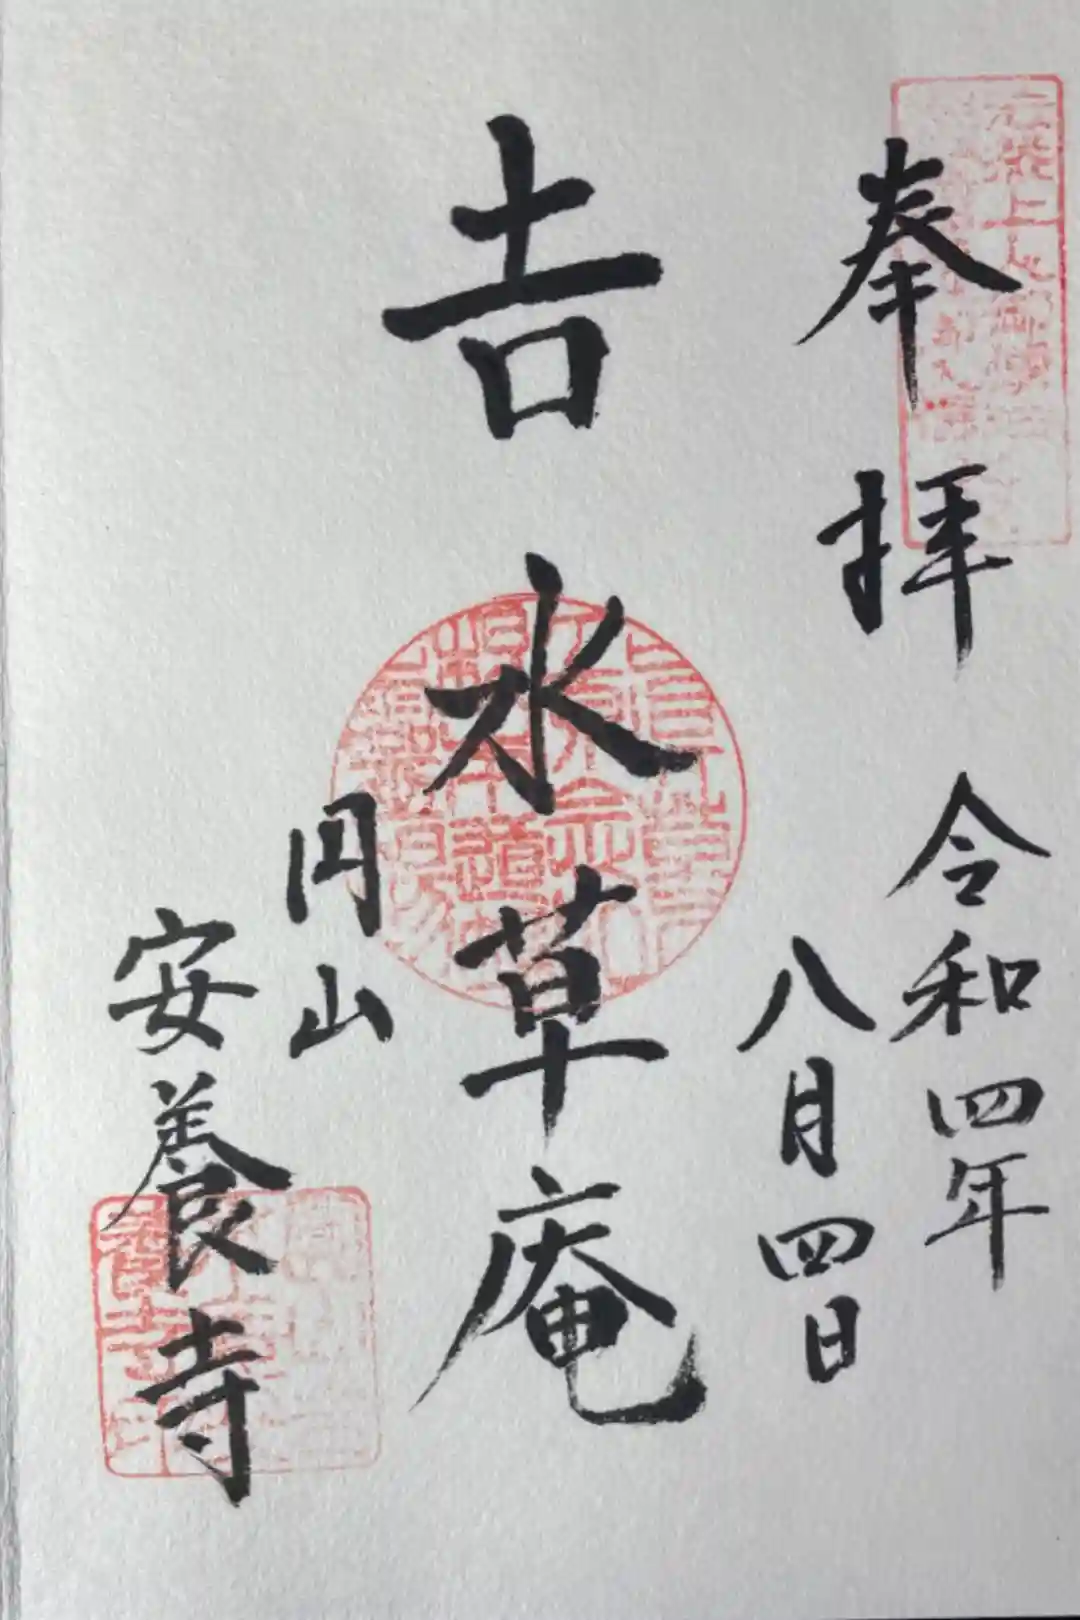 奉拝
令和四年
八月四日
吉水草庵
円山
安養寺